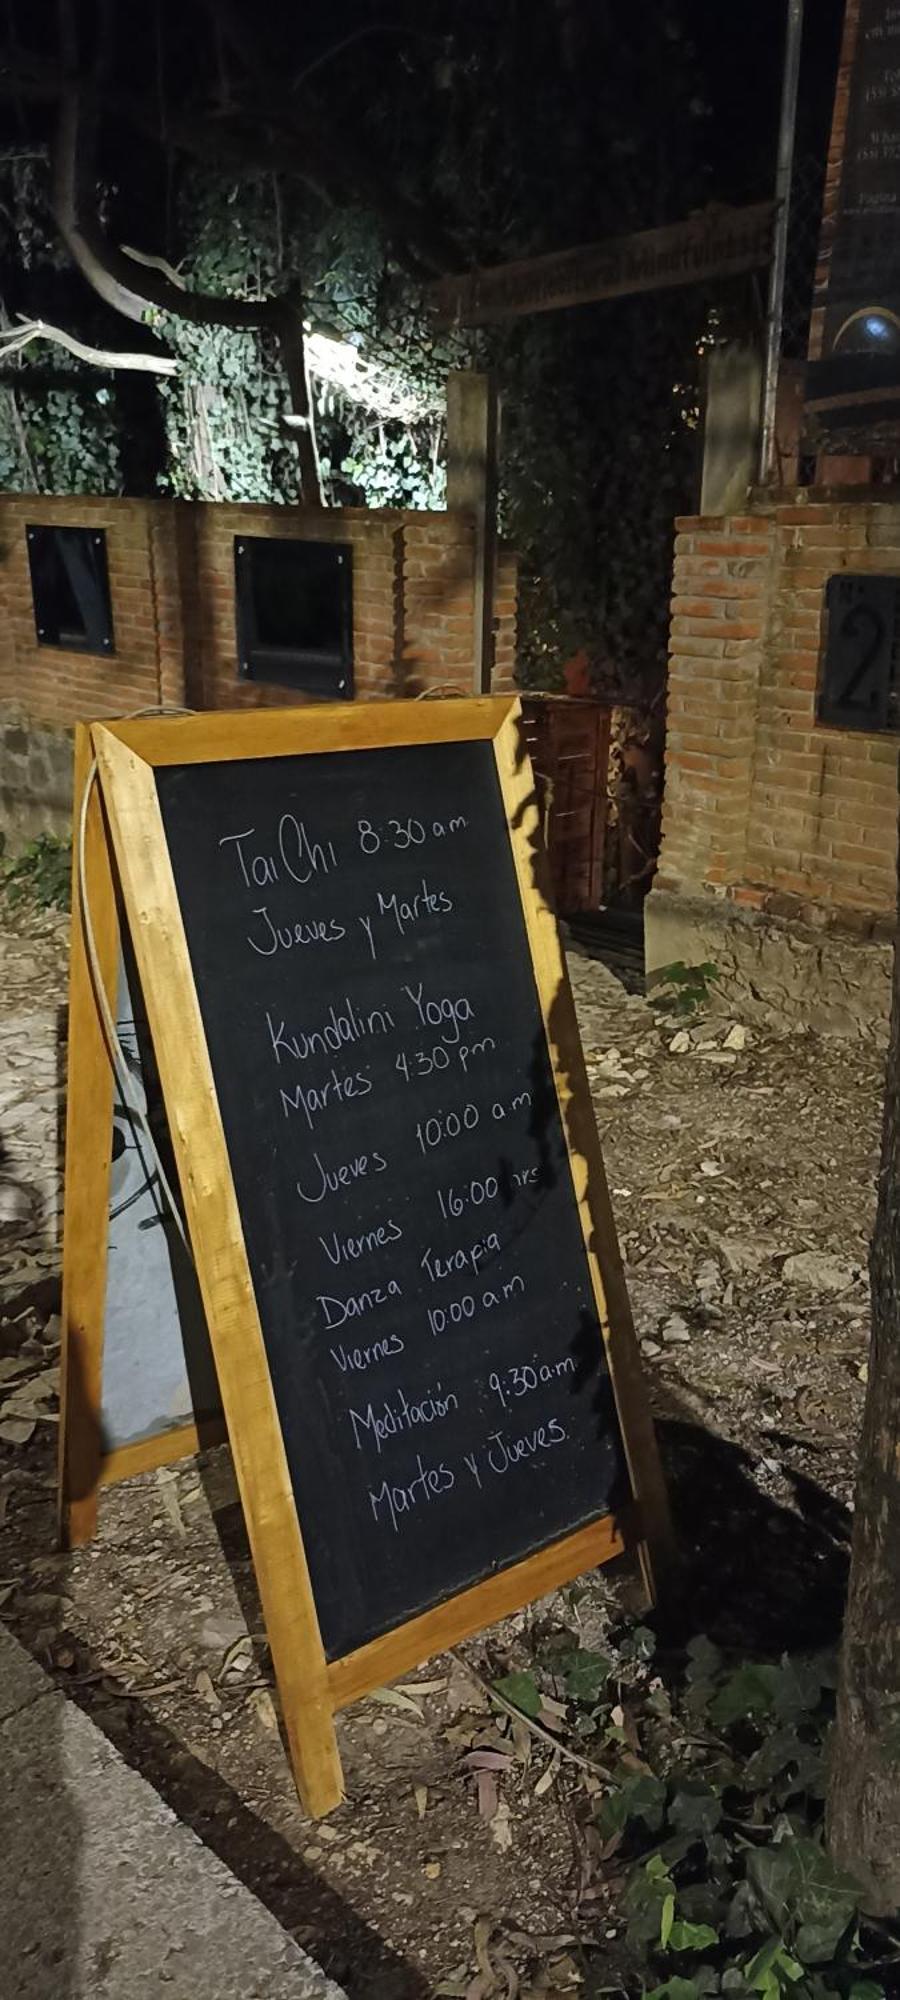 Tai Chi 8:30 am
Jueves y Martes
Kundalini Yoga
Martes 4:30 pm
Jueves 10:00 a.m
Viernes 16:00 hrs
Danza Terapia
Viernes 10:00 a.m
Meditación 9:30 a.m.
Martes y Jueves.
2